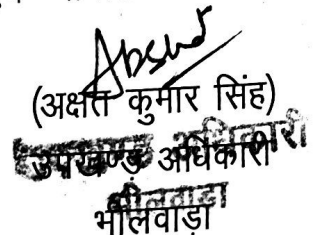 (अक्षत कुमार सिंह)
उपखण्ड़ अधिकारी
भीलवाड़ा